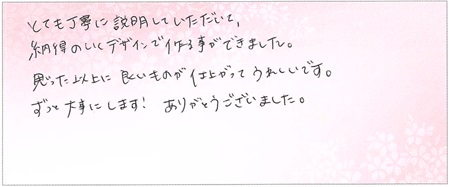 とても丁寧に説明していただいて、
納得のいくデザインで作る事ができました。
思った以上に良いものが仕上がってうれしいです。
ずっと大事にします! ありがとうございました。